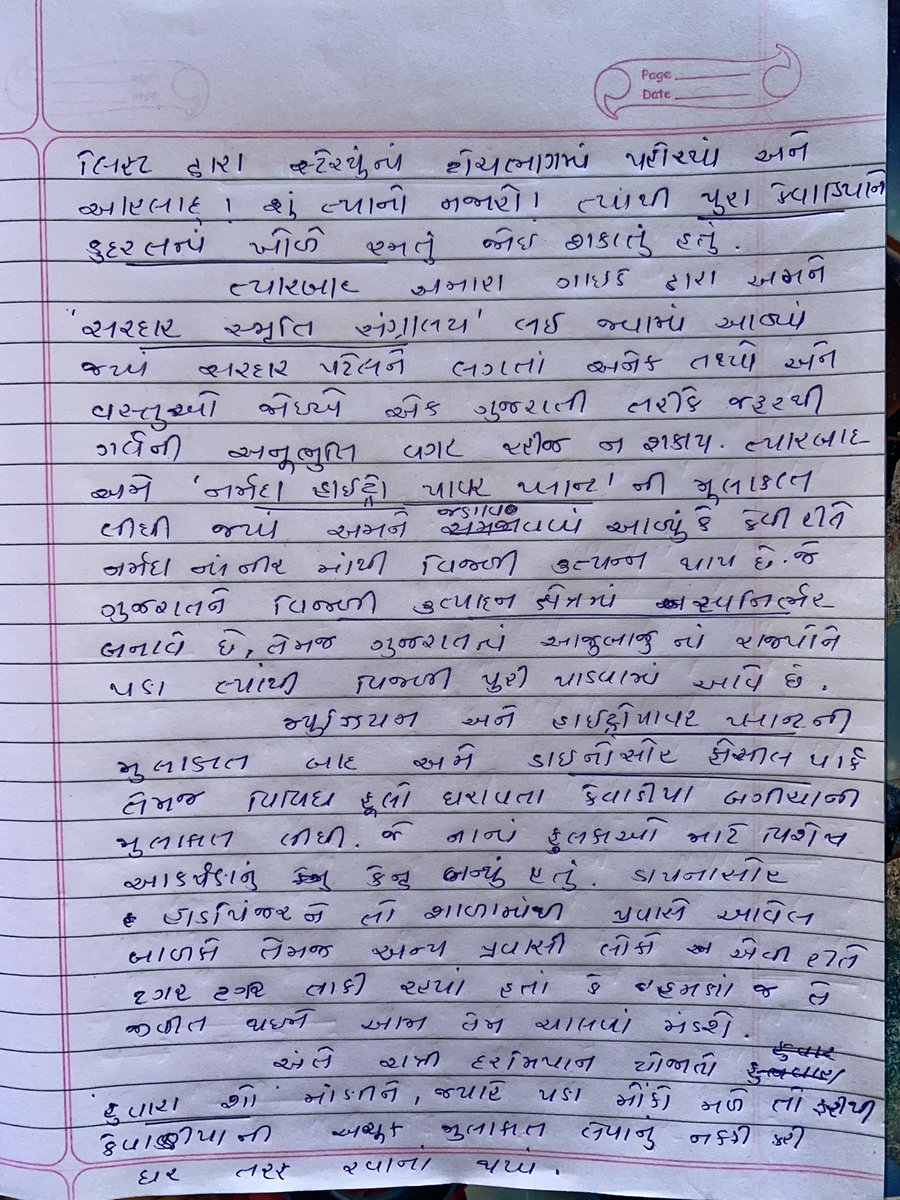 Page
Date
લિસ્ટ દ્વારા સ્ટેચ્યુનાં ટોચભાગમાં પહોંચ્યાં અને
આહલાદ્ ! શું ત્યાનો નજારો! ત્યાંથી પુરા કેવાડિયાને
કુદરતનાં ખોળે રમતું જોઇ શકાતું હતું.
ત્યારબાદ અમારા ગાઇડ દ્વારા અમને
'સરદાર સ્મૃતિ સંગ્રાલય' લઇ જવામાં આવ્યાં
જ્યાં સરદાર પટેલને લગતાં અનેક તથ્યો અને
વસ્તુઓ જોઇએ એક ગુજરાતી તરીકે જરૂરથી
ગર્વની અનૂભુતિ વગર રહીજ ન શકાય. ત્યારબાદ
અમે 'નર્મદા હાઈડ્રો પાવર પ્લાન્ટ' ની મૂલાકાત
લીધી જ્યાં અમને જણાવવાં આવ્યું કે કેવી રીતે
નર્મદા નાં નીર માંથી વિજળી ઉત્પન્ન થાય છે. જે
ગુજરાતને વિજળી ઉત્પાદન ક્ષેત્રમાં સ્વનિર્ભર
બનાવે છે, તેમજ ગુજરાતનાં આજુબાજુ નાં રાજ્યોને
પણ ત્યાંથી વિજળી પુરી પાડવામાં આવે છે.
મ્યુઝિયમ અને હાઈડ્રોપાવર પ્લાન્ટની
મુલાકાત બાદ અમે ડાઇનોસોર ફોસીલ પાર્ક
તેમજ વિવિધ ફૂલો ધરાવતા કેવાડીયા બગીચાની
મુલાકાત લીધી. જે નાનાં ભુલકાઓ માટે વિશેષ
આકર્ષણનું કેન્દ્ર બન્યું હતું. ડાયનાસોર
હાડપિંજર ને તો શાળામાંથી પ્રવાસે આવેલ
બાળકો તેમજ અન્ય પ્રવાસી લોકો એવી રીતે
ટગર ટગર તાકી રહ્યાં હતાં કે હમણાં જ તે
જીવીત થઇને આમ તેમ ચાલવાં મંડશે.
અંતે રાત્રી દરમિયાન યોજાતો
ફુવારા શો માંણીને, જ્યારે પણ મોકો મળે તો ફરીથી
કેવાડીયા ની અચૂક મુલાકાત લેવાનું નક્કી કરી
ઘર તરફ રવાનાં થયાં.